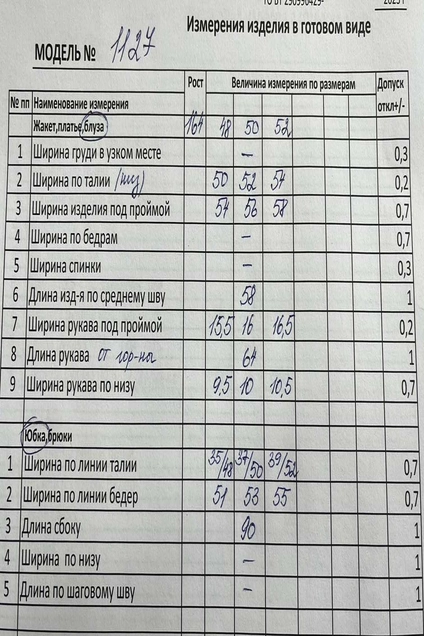 ТО ВТ 290990429-
2025 г
Измерения изделия в готовом виде
МОДЕЛЬ № 1127
Рост Величина измерения по размерам Допуск
№ пп Наименование измерения откл+/-
Жакет,платье,блуза 164 48 50 52
1 Ширина груди в узком месте – 0,3
2 Ширина по талии /низ/ 50 52 54 0,2
3 Ширина изделия под проймой 54 56 58 0,7
4 Ширина по бедрам – 0,7
5 Ширина спинки – 0,3
6 Длина изд-я по среднему шву 58 1
7 Ширина рукава под проймой 15,5 16 16,5 0,2
8 Длина рукава от гор-ны 64 1
9 Ширина рукава по низу 9,5 10 10,5 0,7
Юбка,брюки
1 Ширина по линии талии 35/48 37/50 39/52 0,7
2 Ширина по линии бедер 51 53 55 0,7
3 Длина сбоку 90 1
4 Ширина по низу – 1
5 Длина по шаговому шву – 1